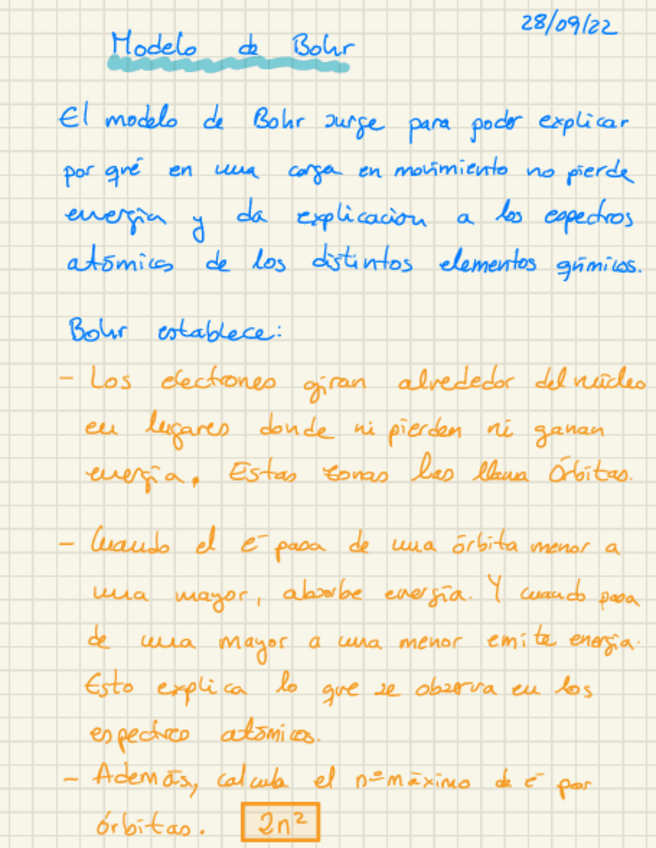 28/09/22
Modelo de Bohr
El modelo de Bohr surge para poder explicar
por qué en una carga en movimiento no pierde
energía y da explicación a los espectros
atómicos de los distintos elementos químicos.
Bohr establece:
- Los electrones giran alrededor del núcleo
en lugares donde ni pierden ni ganan
energía. Estas zonas las llama Órbitas.
- Cuando el e⁻ pasa de una órbita menor a
una mayor, absorbe energía. Y cuando pasa
de una mayor a una menor emite energía.
Esto explica lo que se observa en los
espectros atómicos.
- Además, calcula el nº máximo de e⁻ por
órbitas. 2n²